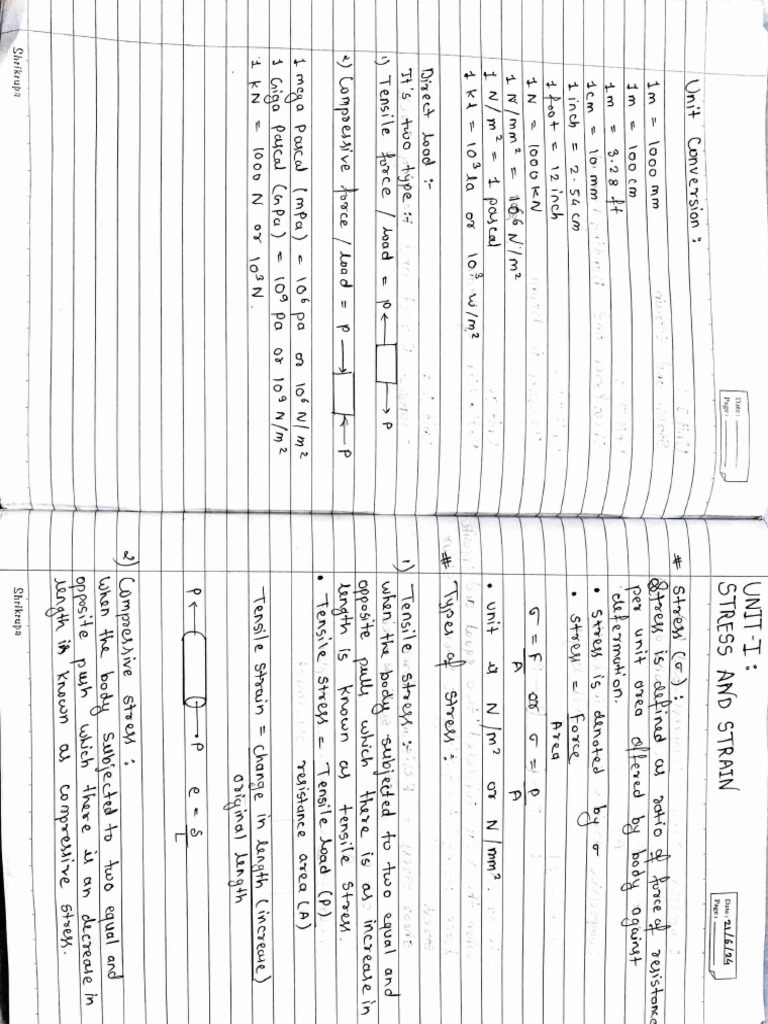 Date:
Page:
Unit Conversion :
1m = 1000 mm
1m = 100 cm
1m = 3.28 ft
1cm = 10 mm
1 inch = 2.54 cm
1 foot = 12 inch
1N = 1000 KN
1 N/mm² = 10⁶ N/m²
1 N/m² = 1 pascal
1 kt = 10³ la or 10³ w/m²
Direct load :-
It's two type :-
1) Tensile force / load = P ← → P
2) Compressive force / load = P → ← P
1 mega Pascal (mPa) = 10⁶ pa or 10⁶ N/m²
1 Giga pascal (GPa) = 10⁹ pa or 10⁹ N/m²
1 KN = 1000 N or 10³ N.
Shrikrupa
Date: 21/6/24
Page:
UNIT-I :
STRESS AND STRAIN
# Stress (σ) :
Stress is defined as ratio of force of resistance
per unit area offered by body against
defermation.
• stress is denoted by σ
• stress = Force
Area
σ = F or σ = P
A A
• unit is N/m² or N/mm².
# Types of stress :
1) Tensile stress :
when the body subjected to two equal and
opposite pulls which there is as increase in
length is known as tensile stress.
• Tensile stress = Tensile load (P)
resistance area (A)
Tensile strain = change in length (increase)
original length
P ← → P e = δ
L
2) Compressive stress :
when the body subjected to two equal and
opposite push which there is an decrease in
length is known as compressive stress.
Shrikrupa